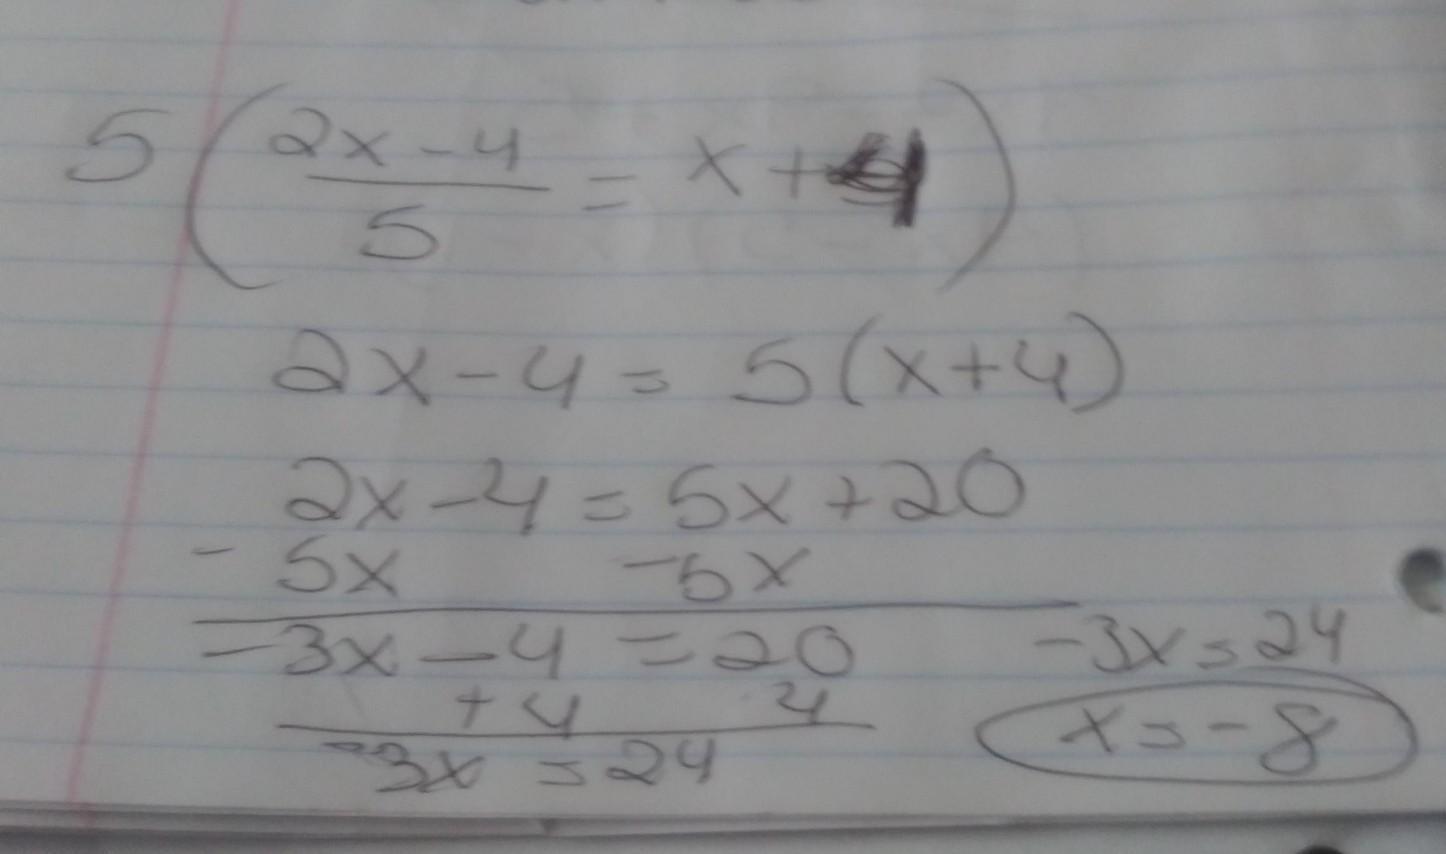 5(2x-4/5 = x+4)
2x-4 = 5(x+4)
2x-4 = 5x+20
- 5x -5x
-3x-4 = 20
+4 4
-3x = 24
-3x = 24
x = -8